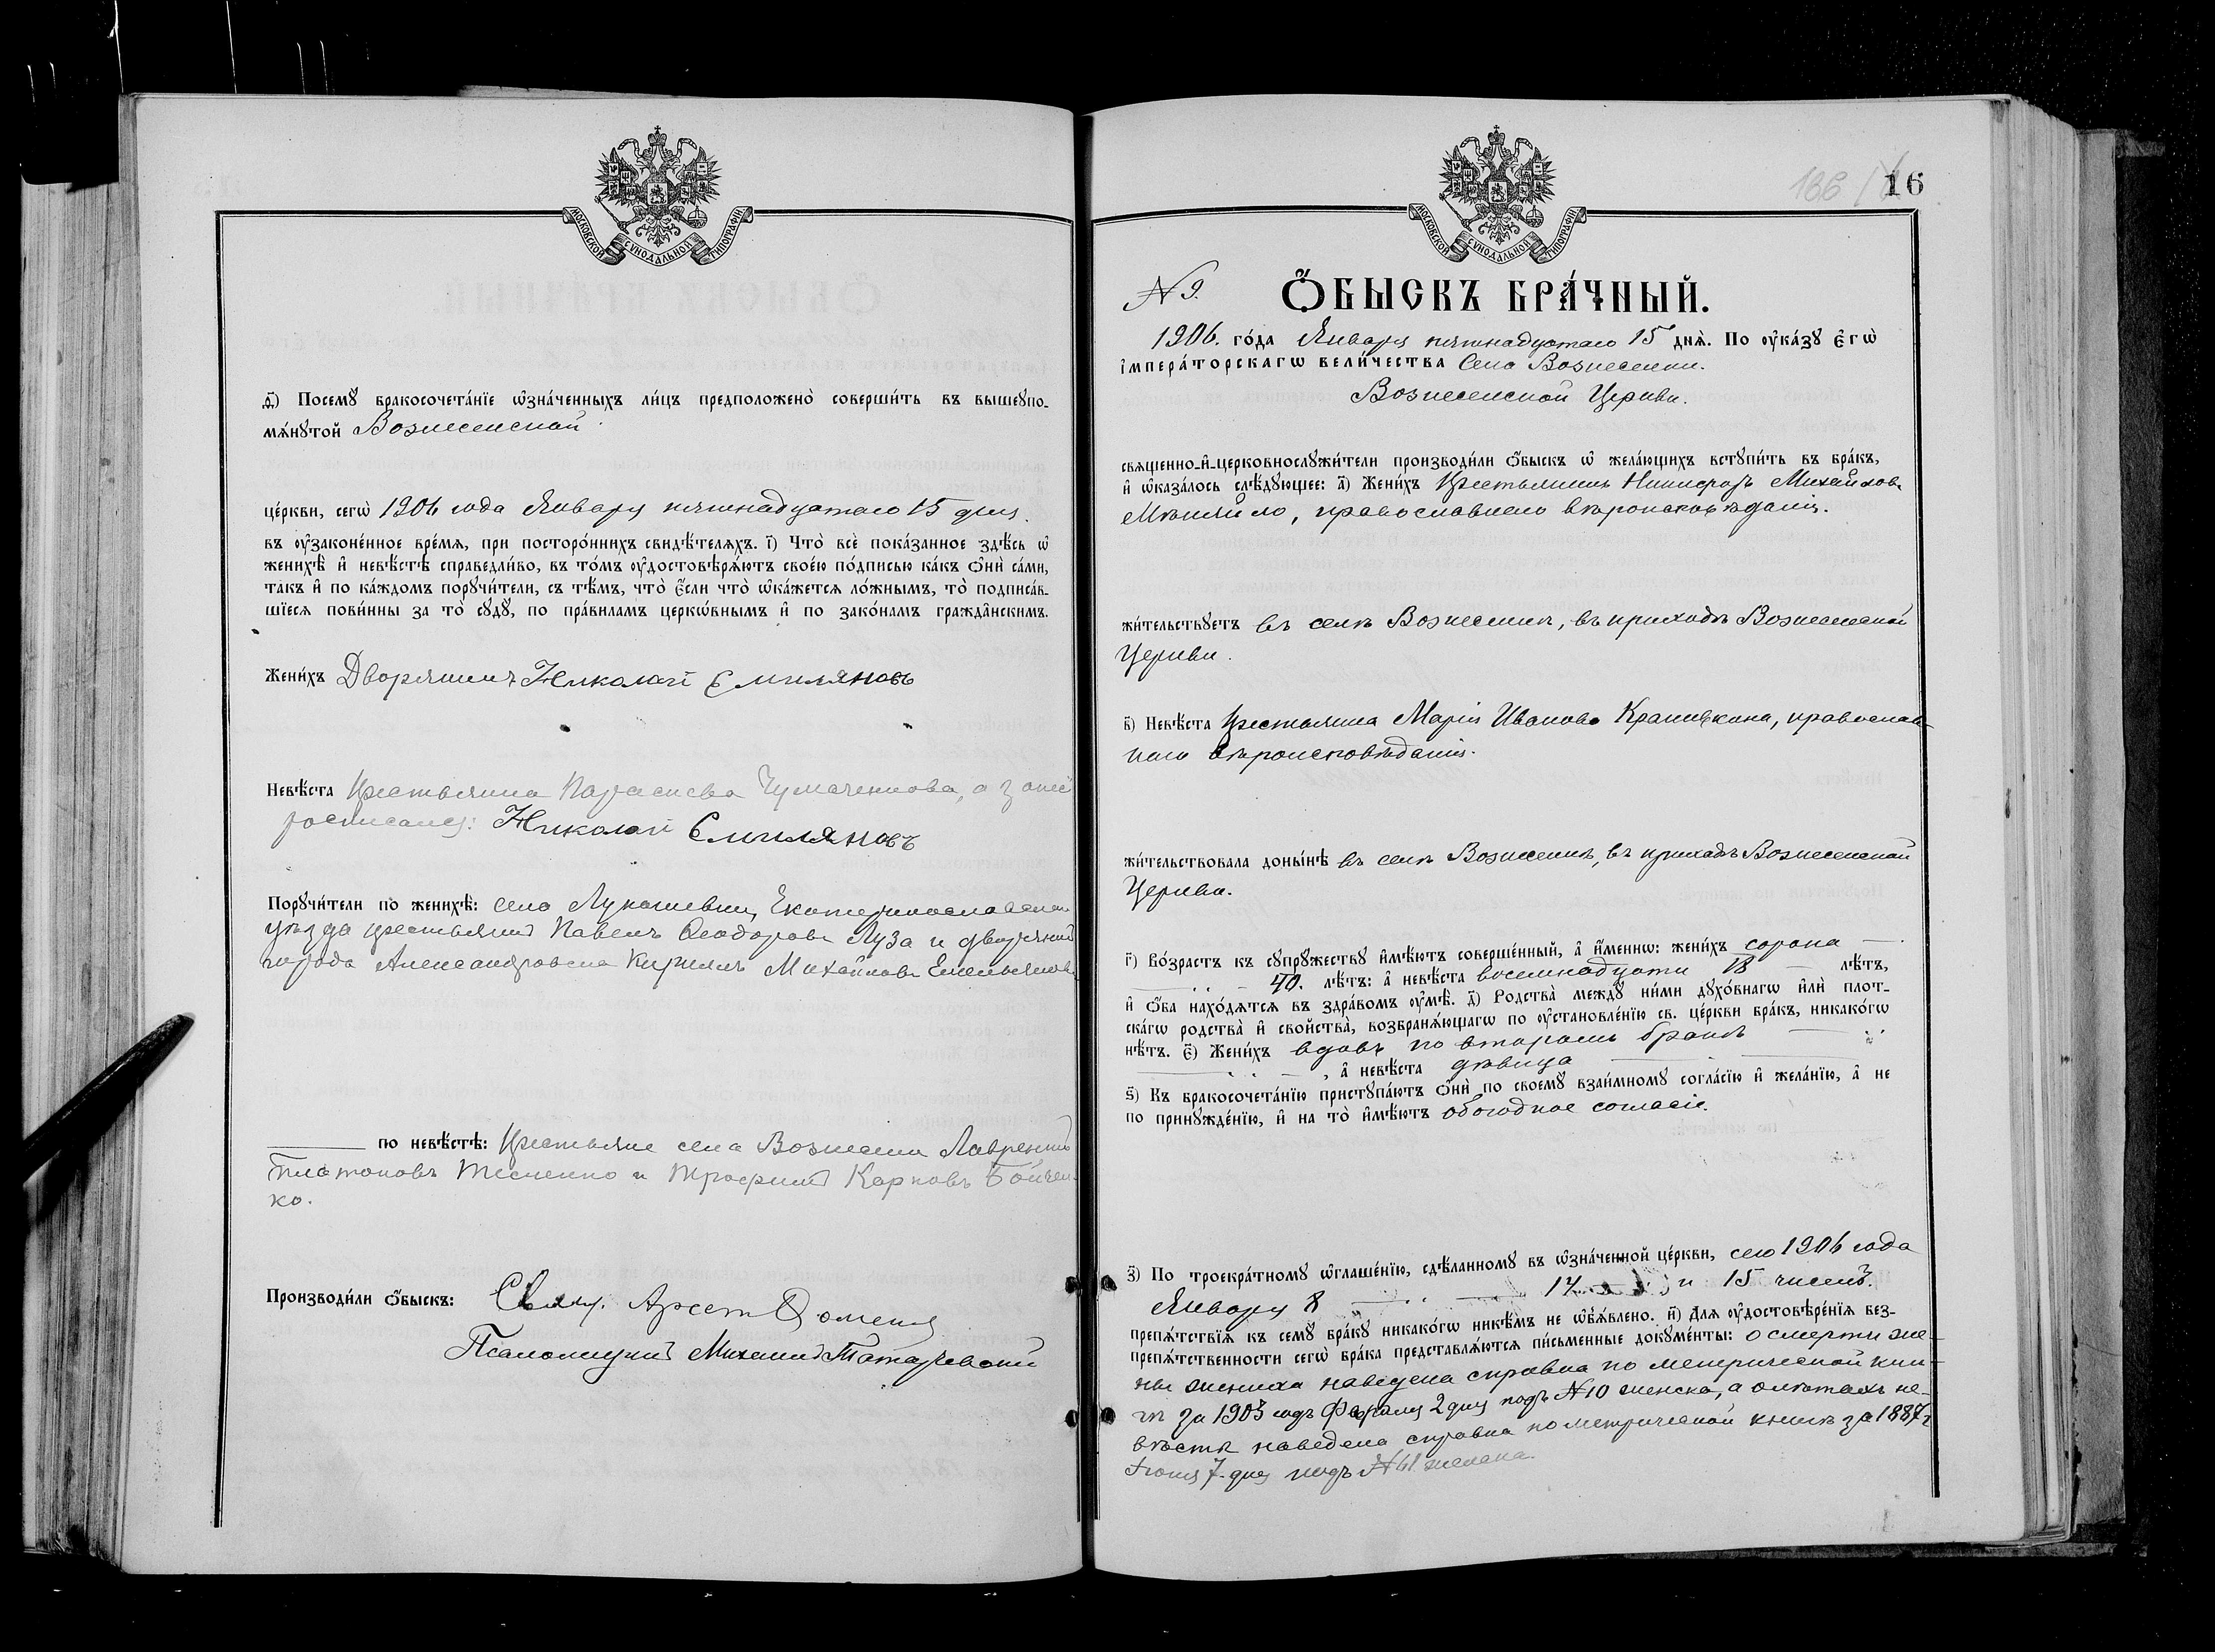 МОСКОВСКОЙ СѴНОДАЛЬНОЙ ТИПОГРАФІИ
д҃і) Посему̀ бракосочета́нїе ѡ҆зна́ченныхъ ли́цъ предположено̀ соверши́ть въ вышеупо-
мѧ́нутой Вознесенской
це́ркви, сегѡ̀ 1906 года Января пятнадцатаго 15 дня.
въ ѹ҆законе́нное вре́мѧ, при посторо́ннихъ свидѣ́телѧхъ. і҃) Что̀ всѐ пока́занное здѣ́сь ѡ҆
женихѣ̀ и҆ невѣ́стѣ справедли́во, въ то́мъ ѹ҆достовѣрѧ́ютъ свое́ю по́дписью ка́къ ѻ҆нѝ са́ми,
та́къ и҆ по ка́ждомъ поручи́тели, съ тѣ́мъ, что̀ є҆́сли что̀ ѡ҆ка́жетсѧ ло́жнымъ, то̀ подписа́в-
шїесѧ пови́нны за то̀ суду̀, по пра́виламъ церкѡ́внымъ и҆ по зако́намъ гражда̂нскимъ.
Жени́хъ Дворянинъ Николай Емиляновъ
Невѣ́ста Крестьянка Параскева Чумаченкова, а за нее
росписался: Николай Емиляновъ
Поручи́тели по женихѣ̀: села Лукашевки, Екатеринославскаго
уѣзда крестьянинъ Павелъ Ѳеодоровъ Луза и дворянинъ
города Александровска Кириллъ Михайловъ Емельяновъ
по невѣ́стѣ: Крестьяне села Вознесенки Лаврентій
Платоновъ Тесленко и Трофимъ Карповъ Бойчен-
ко.
Производи́ли ѻ҆́быскъ: Свящ.
Псаломщикъ Михаилъ
МОСКОВСКОЙ СѴНОДАЛЬНОЙ ТИПОГРАФІИ
166 16
№ 9. Ѻ҆́БЫСКЪ БРА́ЧНЫЙ.
1906. го́да Января пятнадцатаго 15 днѧ̀. По ѹ҆ка́зу є҆гѡ̀
і҆мпера́торскагѡ вели́чества Село Вознесенки.
Вознесенской Церкви.
свѧще́нно-и҆-церковнослужи́тели производи́ли ѻ҆́быскъ ѡ҆ жела́ющихъ вступи́ть въ бра́къ,
и҆ ѡ҆каза́лось слѣ́дующее: а҃) Жени́хъ Крестьянинъ Никифоръ Михайловъ
православнаго вѣроисповѣданія.
жи́тельствуетъ въ селѣ Вознесенкѣ, въ приходѣ Вознесенской
Церкви.
в҃) Невѣ́ста Крестьянка Марія Иванова православ-
наго вѣроисповѣданія.
жи́тельствовала доны́нѣ въ селѣ Вознесенкѣ, въ приходѣ Вознесенской
Церкви.
г҃) Во́зрастъ къ супру́жеству и҆мѣ́ютъ соверше́нный, а҆ и҆́меннѡ: жени́хъ сорока
40. лѣ́тъ: а҆ невѣ́ста восемнадцати 18 лѣ́тъ,
и҆ ѻ҆́ба нахо́дѧтсѧ въ здра́вомъ ѹ҆мѣ̀. д҃) Родства̀ между ни́ми духо́внагѡ и҆лѝ плот-
ска́гѡ родства̀ и҆ свойства̀, возбранѧ́ющагѡ по ѹ҆становле́нїю св. це́ркви бра́къ, никако́гѡ
нѣ́тъ. є҃) Жени́хъ вдовъ по второмъ бракѣ
, а҆ невѣ́ста дѣвица
ѕ҃) Къ бракосочета́нїю приступа́ютъ ѻ҆нѝ по своемꙋ̀ взаи́мному согла́сїю и҆ жела́нїю, а҆ не
по принужде́нїю, и҆ на то̀ и҆мѣ́ютъ обоюдное согласіе.
з҃) По троекра́тному ѡ҆глаше́нїю, сдѣ́ланному въ ѡ҆зна́ченной це́ркви, сего 1906 года
Января 8 14 и 15 числъ.
препѧ́тствїѧ къ сему̀ бра́ку никако́гѡ никѣ́мъ не ѡ҆б̾ѧ́влено. и҃) Длѧ ѹ҆достовѣре́нїѧ без-
препѧ́тственности сегѡ̀ бра́ка представлѧ́ютсѧ пи́сьменные докуме́нты: о смерти же-
ны жениха наведена справка по метрической кни-
гѣ за 1903 годъ Февраля 2 дня подъ №10 женска, а о лѣтахъ не-
вѣсты наведена справка по метрической книгѣ за 1887 г.
7 дня подъ №61 женска.